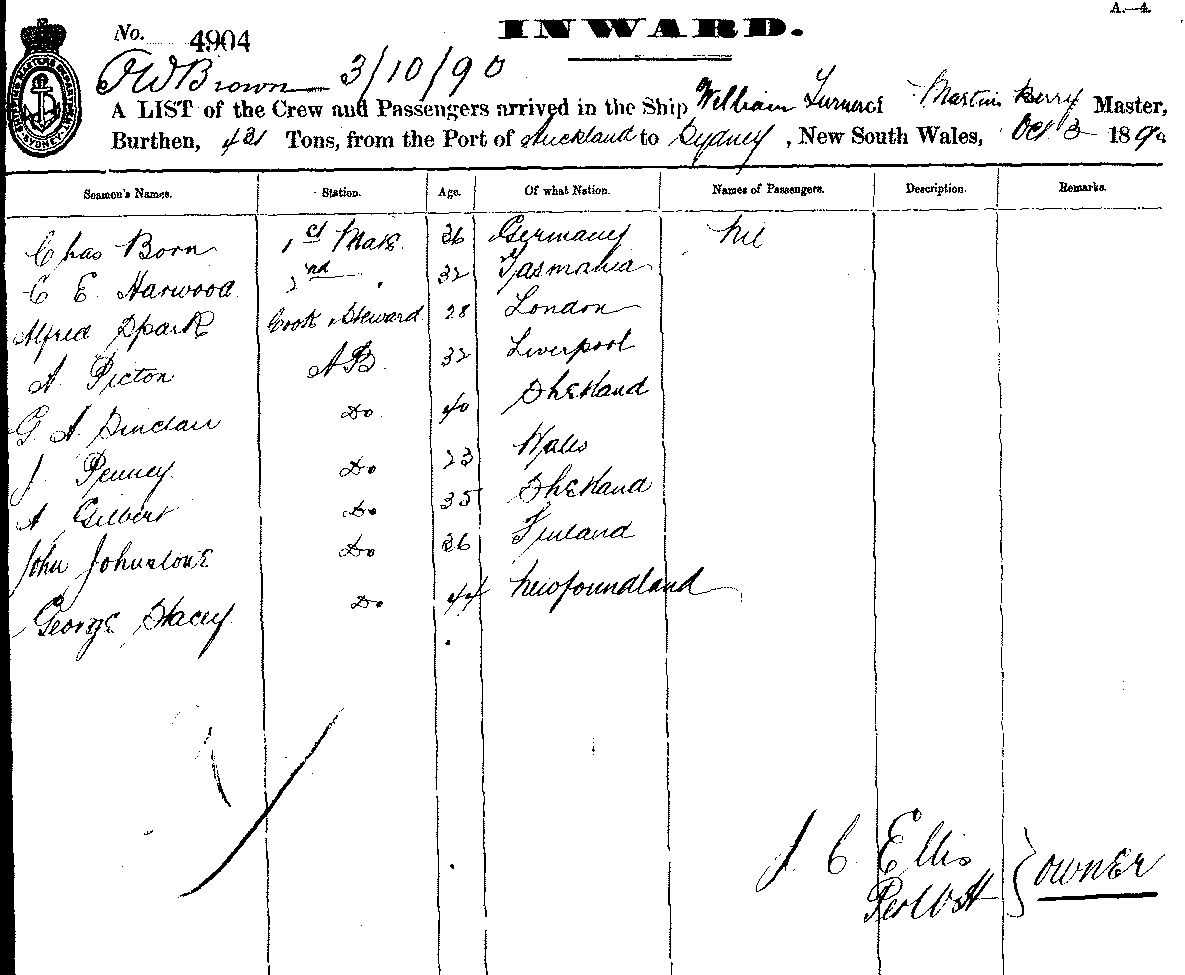 A.—4.
INWARD.
No. 4904
J W Brown 3/10/90
A LIST of the Crew and Passengers arrived in the Ship William Turner Martin Berry Master,
Burthen, 431 Tons, from the Port of Auckland to Sydney, New South Wales, Oct 3 1890
Seamen's Names. Station. Age. Of what Nation. Names of Passengers. Description. Remarks.
Chas Born 1st Mate 36 Germany Nil
C E Harwood 2nd 32 Tasmania
Alfred Spark Cook & Steward 28 London
A Picton AB 32 Liverpool
G A Sinclair Do 40 Shetland
J Penney Do 23 Wales
A Gilbert Do 35 Shetland
John Johnstone Do 36 Finland
George Stacey Do 44 Newfoundland
J C Ellis
Per WH } OWNER